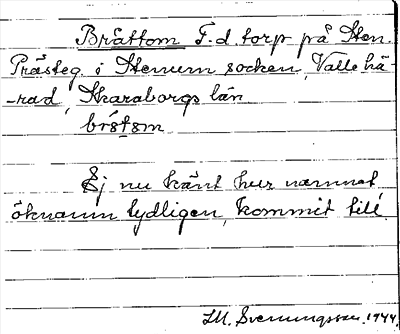 Bråttom F.d. torp på Sten.
Prästeg. i Stenum socken, Valle hä-
-rad, Skaraborgs län

Ej nu känt hur namnet
öknamn tydligen, kommit till
S.M. Svenungsson. 1944